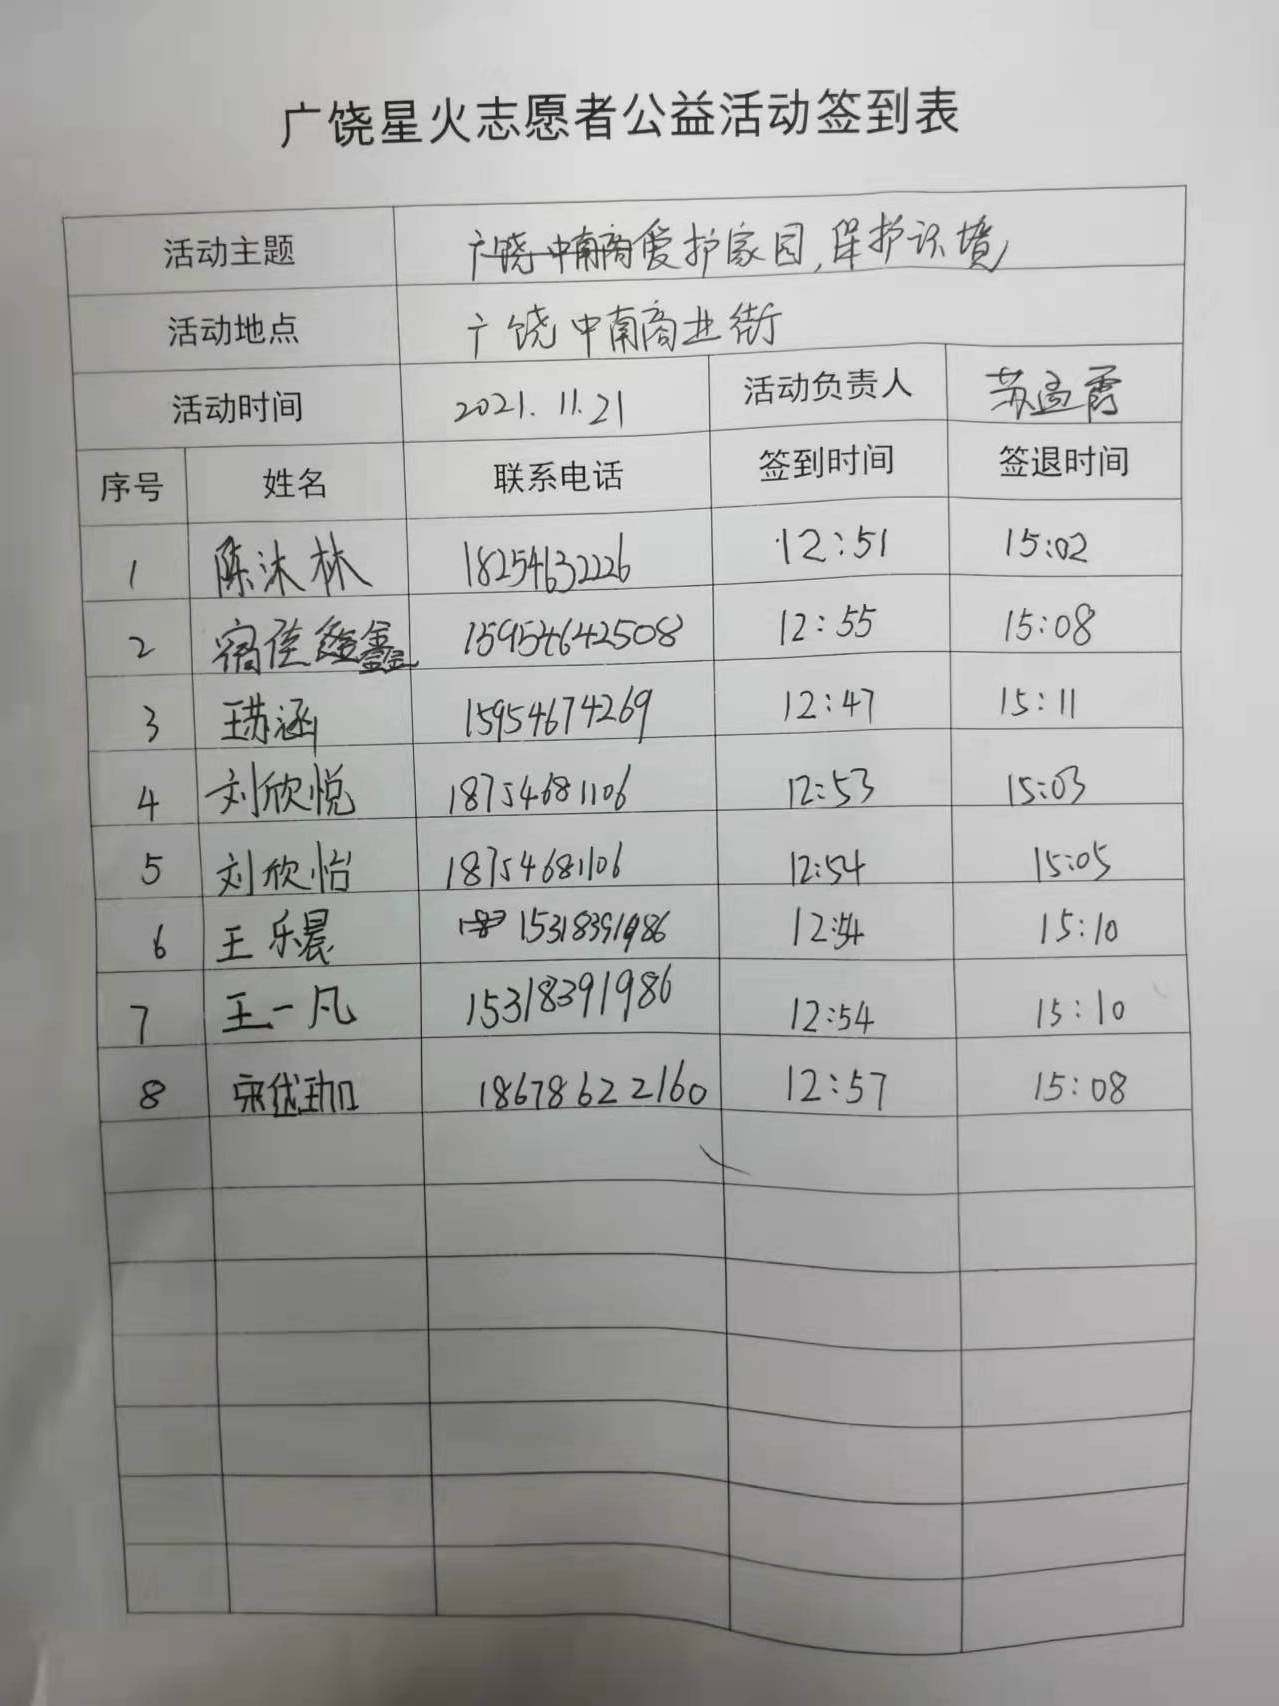 广饶星火志愿者公益活动签到表
活动主题 广饶中南商爱护家园,保护环境
活动地点 广饶中南商业街
活动时间 2021.11.21 活动负责人 苏孟霞
序号 姓名 联系电话 签到时间 签退时间
1 陈沐林 18254632226 12:51 15:02
2 宿佳鑫 15954642508 12:55 15:08
3 王苏涵 15954674269 12:47 15:11
4 刘欣悦 18754681106 12:53 15:03
5 刘欣怡 18754681106 12:54 15:05
6 王乐晨 15318391986 12:54 15:10
7 王一凡 15318391986 12:54 15:10
8 宋岱珈 18678622160 12:57 15:08